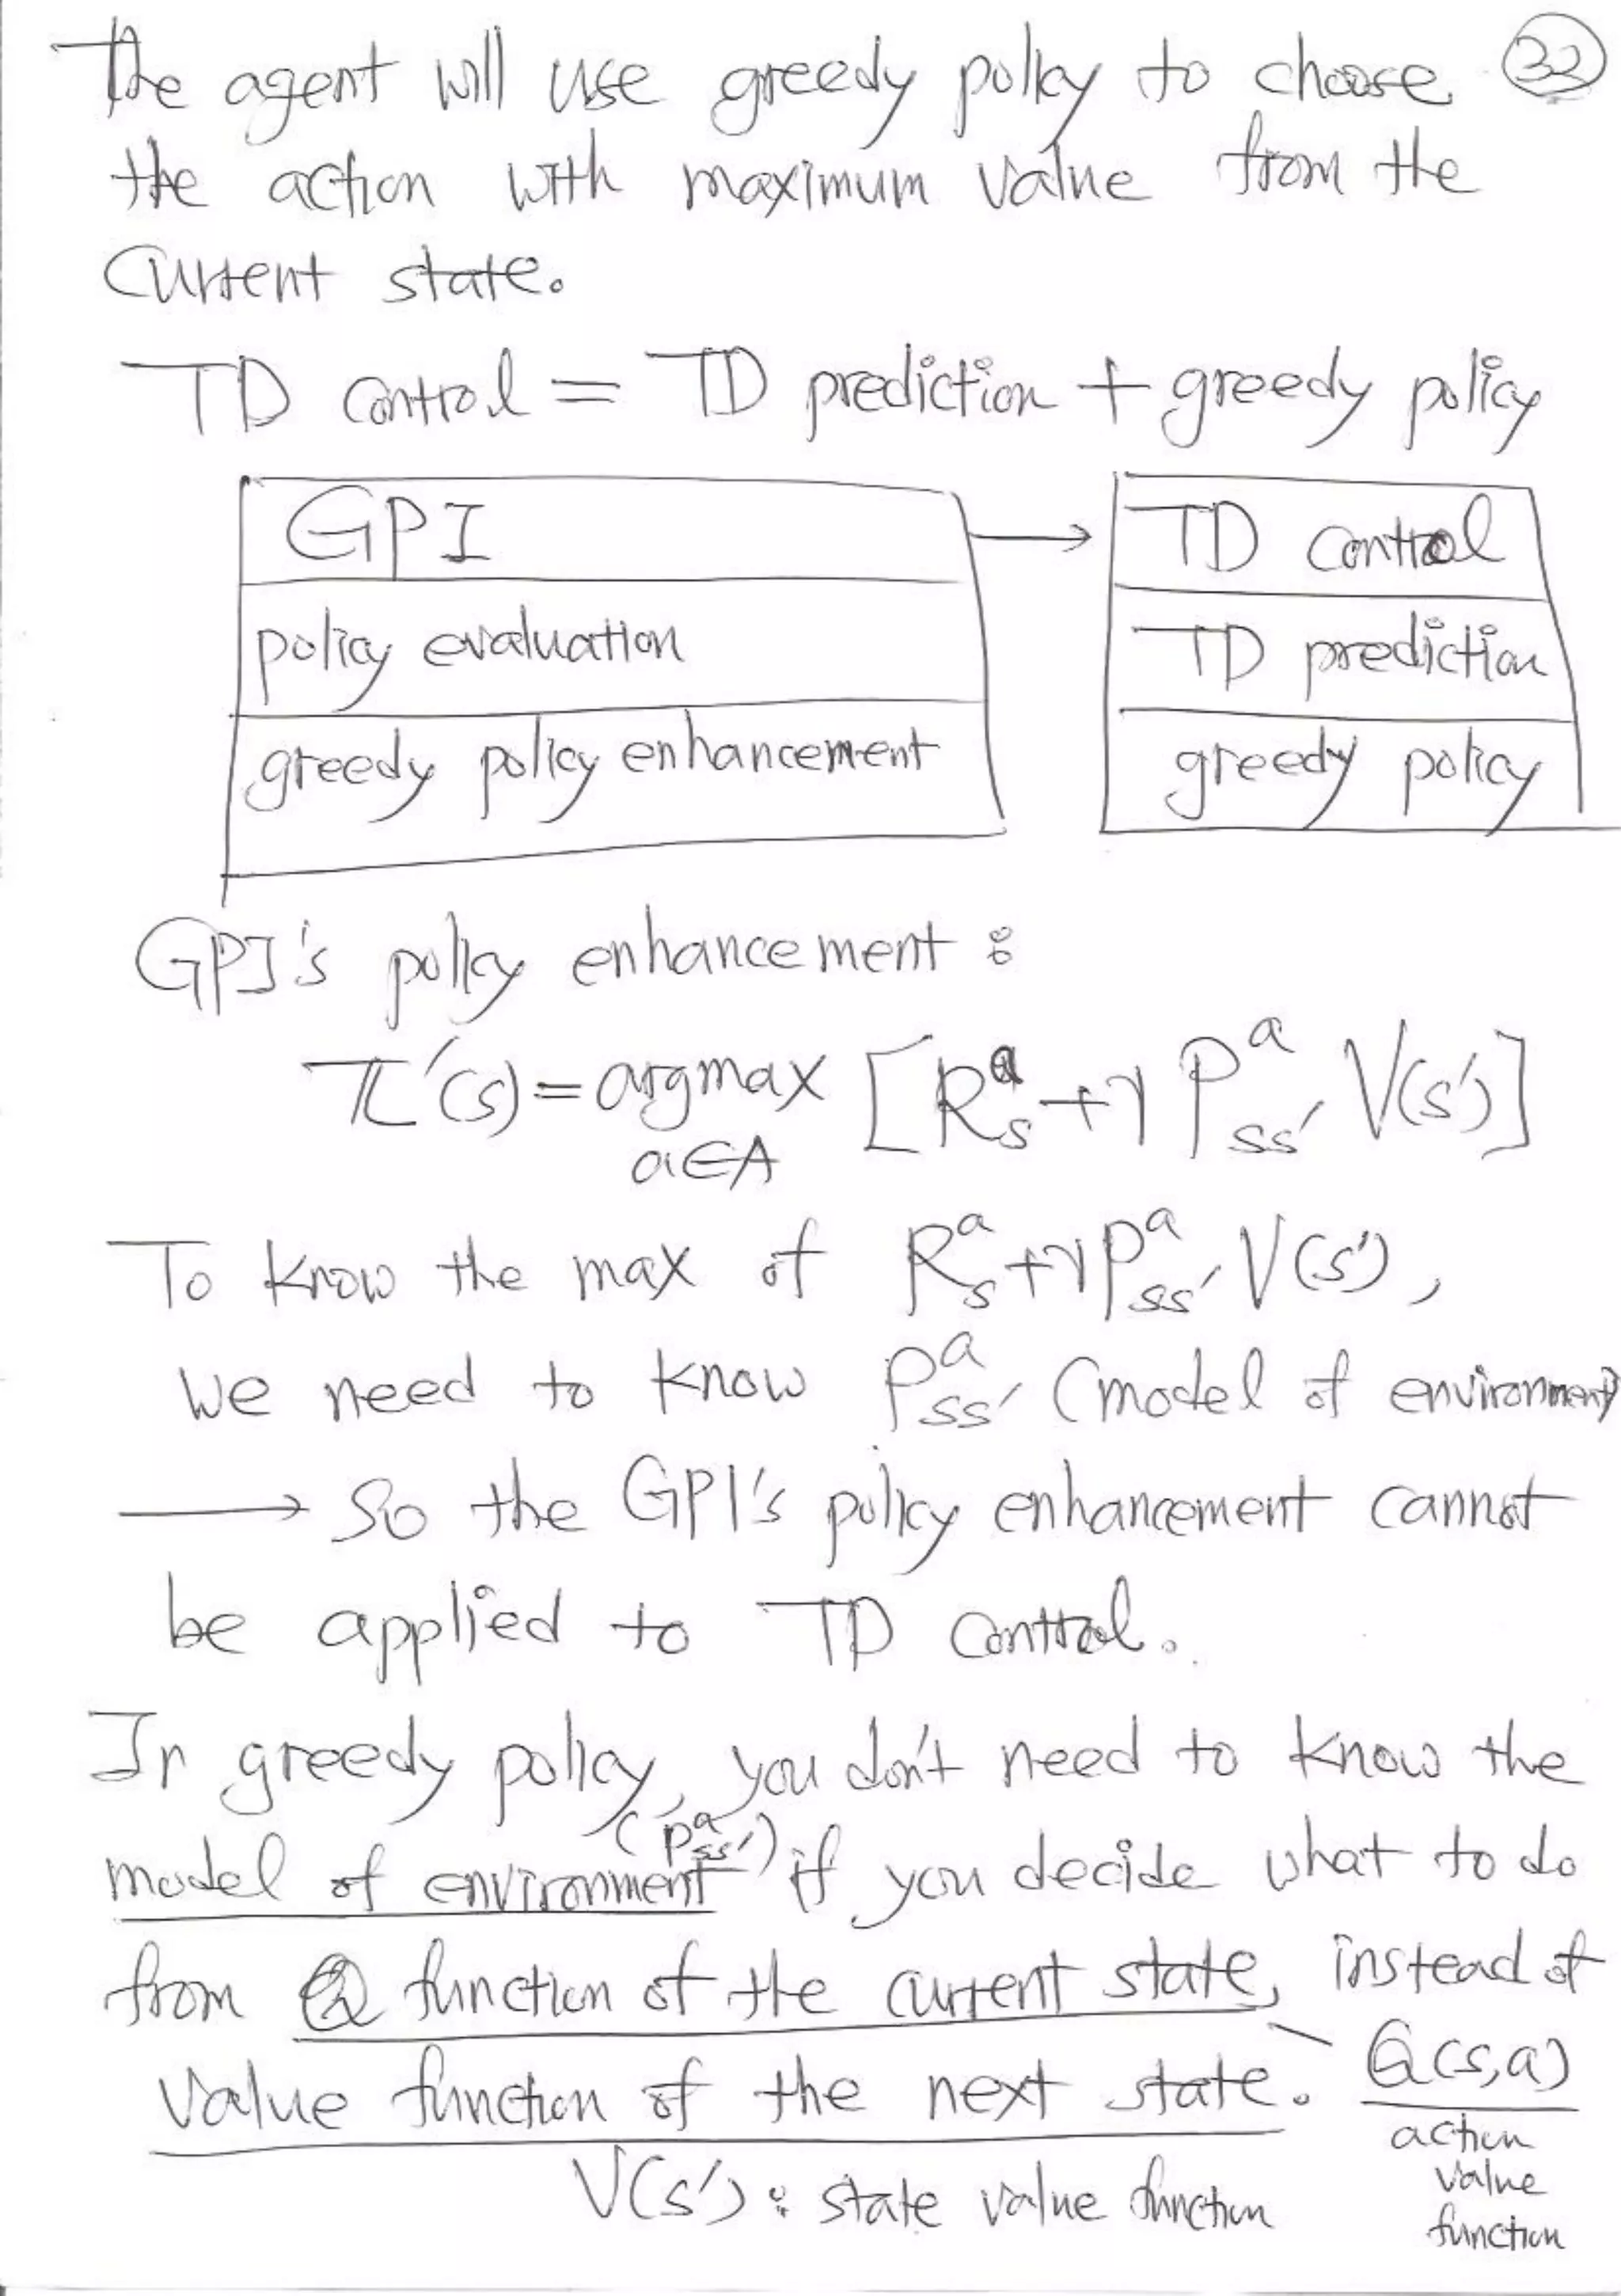 The agent will use greedy policy to choose 32
the action with maximum value from the
current state.
TD control = TD prediction + greedy policy
GPI → TD control
policy evaluation TD prediction
greedy policy enhancement greedy policy
GPI's policy enhancement :
π'(s) = argmax [R_s^a + γ P_ss'^a V(s')]
a∈A
To know the max of R_s^a + γ P_ss'^a V(s'),
we need to know P_ss'^a (model of environment)
→ So the GPI's policy enhancement cannot
be applied to TD control.
In greedy policy, you don't need to know the
model of environment (P_ss'^a) if you decide what to do
from Q function of the current state, instead of
Q(s,a)
value function of the next state.
action
value
function
V(s') : state value function